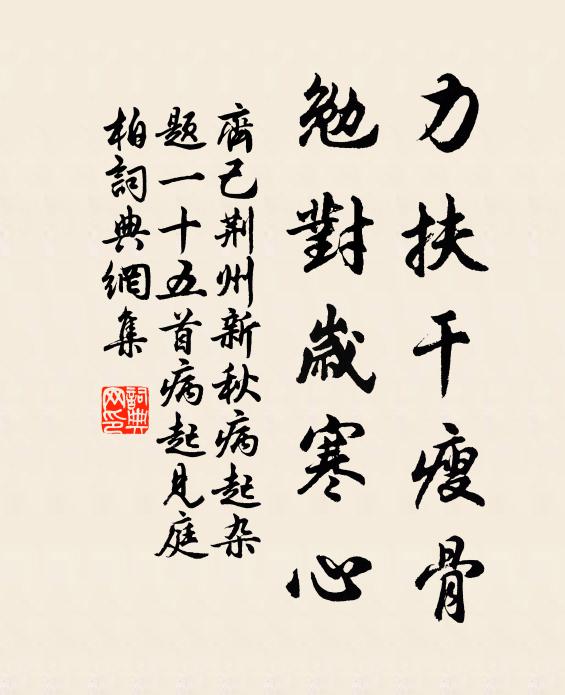 力扶干瘦骨
勉對歲寒心
齊己荆州新秋病起杂
题一十五首病起見庭
柏詞典網集
詞典
网印